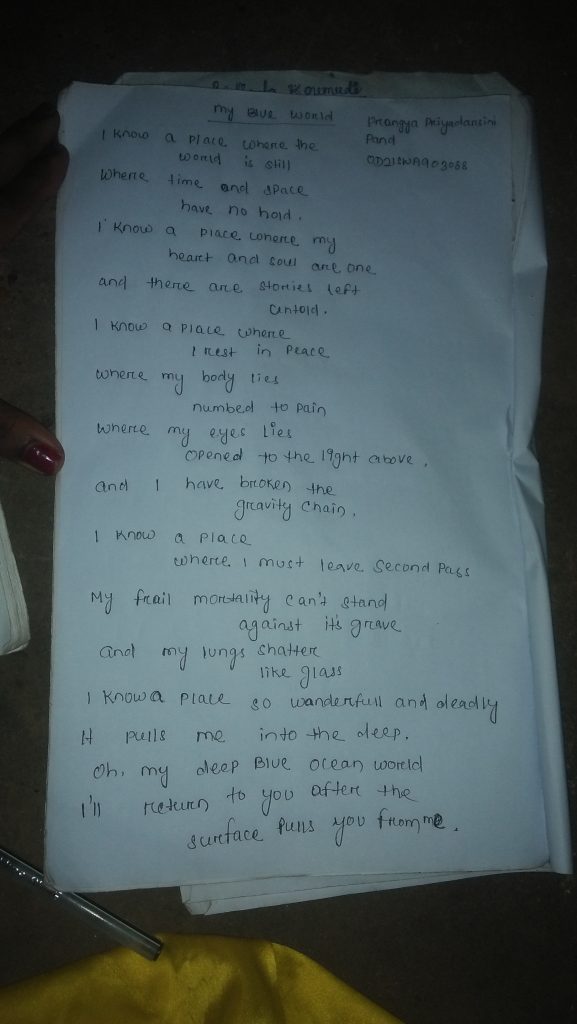 Koumudi
My Blue World
Prangya Priyadarsini
Pand
OD21SWA903088
I know a place where the
world is still
where time and space
have no hold.
I know a place where my
heart and soul are one
and there are stories left
untold.
I know a place where
I rest in peace
where my body lies
numbed to pain
where my eyes lies
opened to the light above,
and I have broken the
gravity chain,
I know a place
where I must leave second Pass
My frail mortality can't stand
against it's grave
and my lungs shatter
like glass
I know a place so wanderfull and deadly
It pulls me into the deep.
Oh, my deep Blue ocean world
I'll return to you after the
surface Pulls you from me.